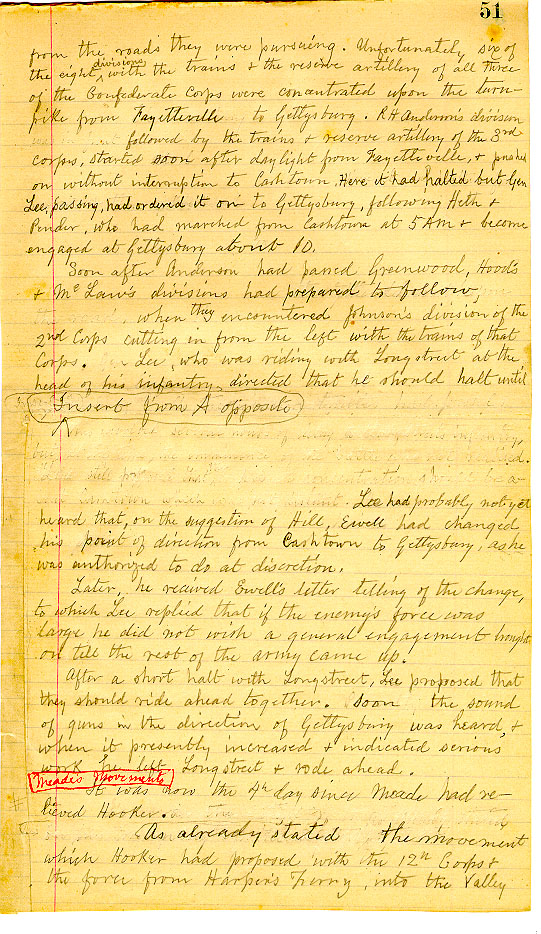 51
from the roads they were pursuing. Unfortunately six of
the eight divisions with the trains & the reserve artillery of all three
of the Confederate Corps were concentrated upon the turn-
pike from Fayetteville to Gettysburg. R.H. Anderson's division
followed by the trains & reserve artillery of the 3rd
corps, started soon after daylight from Fayetteville, & pushed
on without interruption to Cashtown. Here it had halted but Gen
Lee, passing, had ordered it on to Gettysburg, following Heth &
Pender, who had marched from Cashtown at 5 AM & become
engaged at Gettysburg about 10.
Soon after Anderson had passed Greenwood, Hood's
& McLaw's divisions had prepared to follow,
when they encountered Johnson's division of the
2nd Corps cutting in from the left with the trains of that
Corps. Lee, who was riding with Longstreet at the
head of his infantry, directed that he should halt until
Insert from A opposite
Lee had probably not yet
heard that, on the suggestion of Hill, Ewell had changed
his point of direction from Cashtown to Gettysburg, as he
was authorized to do at discretion.
Later, he received Ewell's letter telling of the change,
to which Lee replied that if the enemy's force was
large he did not wish a general engagement brought
on till the rest of the army came up.
After a short halt with Longstreet, Lee proposed that
they should ride ahead together. Soon the sound
of guns in the direction of Gettysburg was heard, &
when it presently increased & indicated serious
work he left Longstreet & rode ahead.
Meade's Movements
It was now the 4th day since Meade had re-
lieved Hooker.
As already stated the movement
which Hooker had proposed with the 12th Corps &
the force from Harper's Ferry, into the Valley